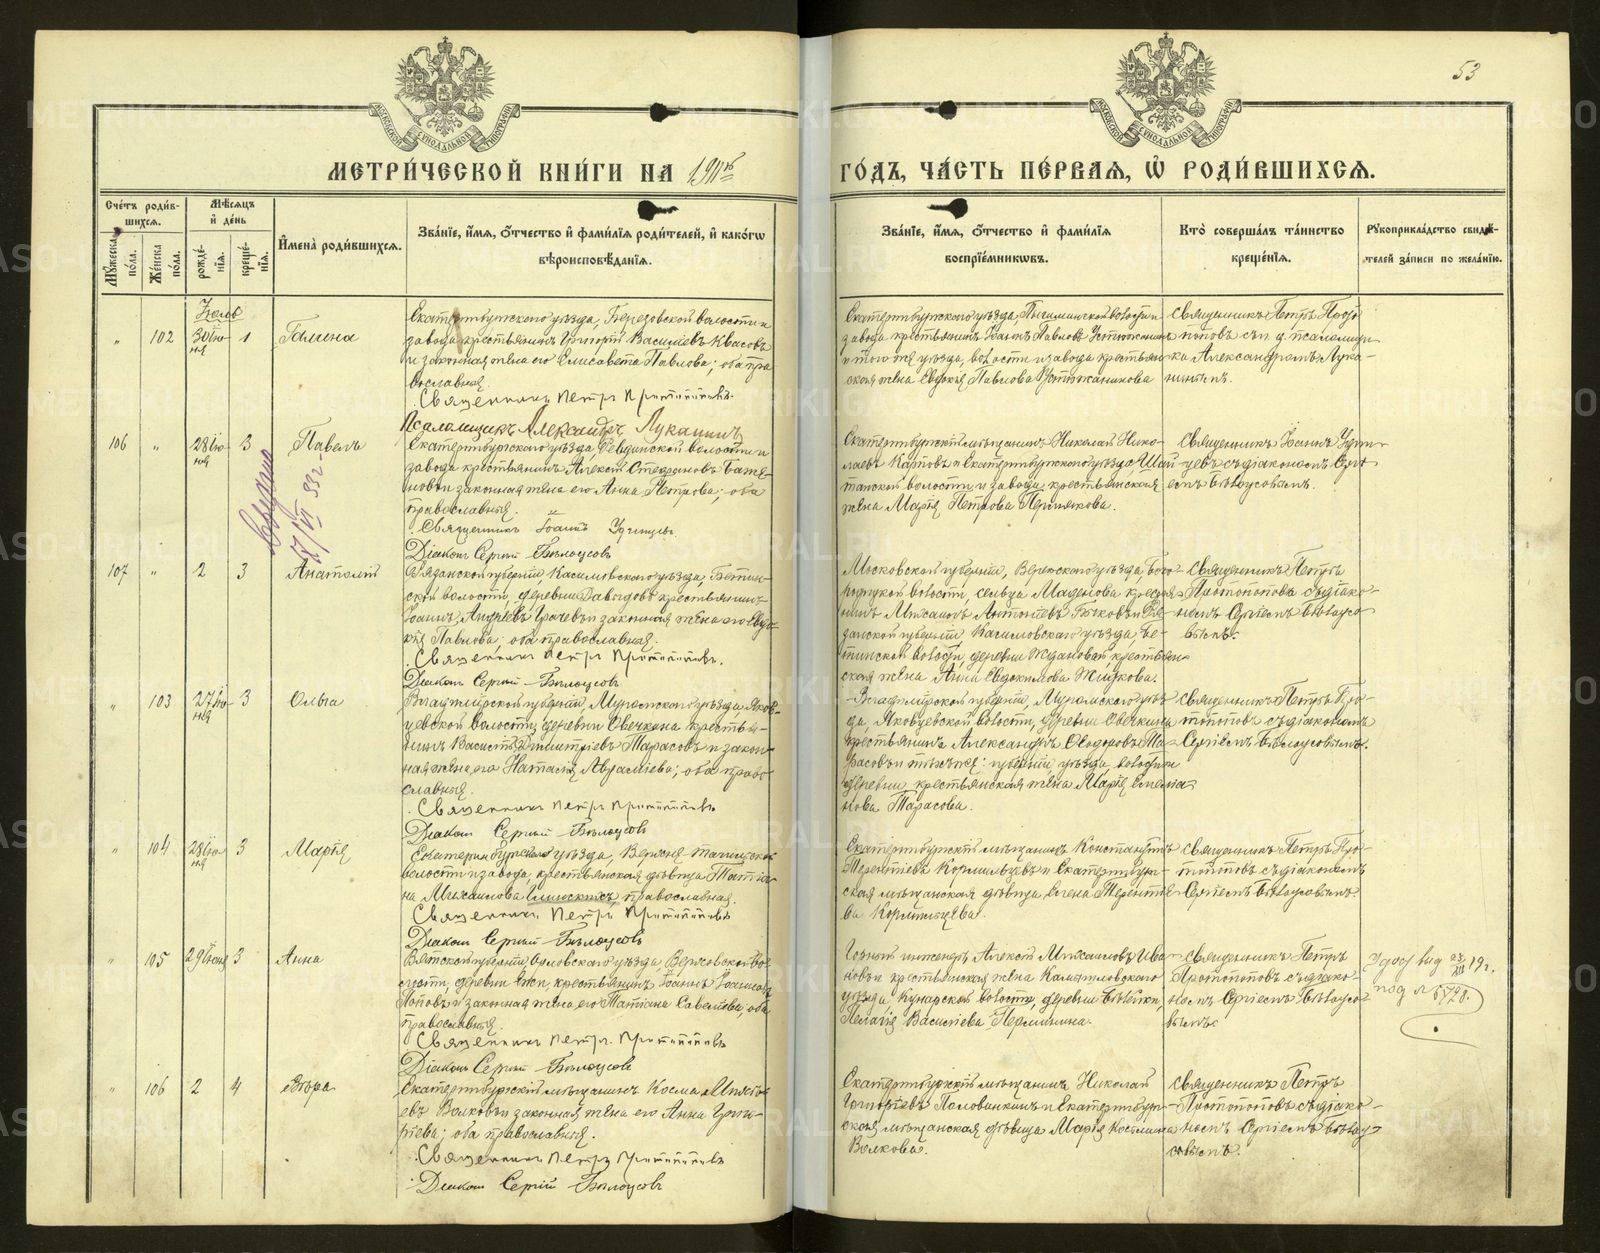 53
МЕТРИ́ЧЕСКОЙ КНИ́ГИ НА 1911й
ГО́ДЪ, ЧА́СТЬ ПЕ́РВАѦ, Ѽ РОДИ́ВШИХСѦ.
Сче́тъ роди́в-
шихсѧ.
Мꙋ́жеска по́ла.
Же́нска по́ла.
Мѣ́сяцъ
и҆ де́нь
рожде́-
нїѧ.
креще́-
нїѧ.
И҆мена̀ роди́вшихсѧ.
Зва́нїе, и҆́мѧ, ѻ҆́тчество и҆ фами́лїѧ роди́телей, и҆ како́гѡ
вѣроисповѣ́данїѧ.
Зва́нїе, и҆́мѧ, ѻ҆́тчество и҆ фами́лїѧ
воспрїе́мникѡвъ.
Кто̀ соверша́лъ та́инство
креще́нїѧ.
Рꙋкоприкла́дство свидѣ́-
телей за́писи по жела́нїю.
Іюль
" 102 30 Ію-
ня 1 Галина
Екатеринбургскаго уѣзда, Березовской волости и
завода крестьянинъ Григорій Васильевъ Квасовъ
и законная жена его Елисавета Павлова; оба пра
вославныя.
Священникъ Петръ Протопоповъ.
Псаломщикъ Александръ Луканинъ
Екатеринбургскаго уѣзда, Пышминской волости и
завода крестьянинъ Іоаннъ Павловъ Устюжанинъ
и того же уѣзда, волости и завода крестьян-
ская жена Евдокія Павлова Устюжанинова
Священникъ Петръ Прото
поповъ съ и. д. псаломщи-
ка Александромъ Лука-
нинымъ.
106 " 28 Ію-
ня 3 Павелъ
Екатеринбургскаго уѣзда Ревдинской волости и
завода крестьянинъ Алексій Стефановъ Баже-
новъ и законная жена его Анна Петрова; оба
православныя.
Священникъ Іоаннъ
Діаконъ Сергій Бѣлоусовъ
Екатеринбургскій мѣщанинъ Николай Нико-
лаевъ Карповъ и Екатеринбургскаго уѣзда Шай
танской волости и завода, крестьянская
жена Марія Петрова Пермякова.
Священникъ Іоаннъ
съ діакономъ Серг
емъ Бѣлоусовымъ.
107 " 2 3 Анатолій
Рязанской губерніи, Касимовскаго уѣзда, Бетин-
ской волости, деревни Давыдово крестьянинъ
Іоаннъ Андреевъ Грачевъ и законная жена его Евдо-
кія Павлова, оба православныя.
Священникъ Петръ Протопоповъ.
Діаконъ Сергій Бѣлоусовъ
Московской губерніи, Верейскаго уѣзда, Бого-
волости, сельца крестья-
нинъ Михаилъ Антоньевъ Быковъ и Ря-
занской губерніи Касимовскаго уѣзда, Бе-
тинской волости, деревни Ждановой крестьян-
ская жена Анна Евдокимова Жидкова.
Священникъ Петръ
Протопоповъ съ діако-
номъ Сергіемъ Бѣлоусо-
вымъ.
" 103 27 Ію-
ня 3 Ольга
Владимірской губерніи, Муромскаго уѣзда Яков-
цевской волости, деревни Овечкина кресть-
янинъ Василій Димитріевъ Тарасовъ и закон-
ная жена его Наталія Авраміева; оба право-
славныя.
Священникъ Петръ Протопоповъ
Діаконъ Сергій Бѣлоусовъ
Владимірской губерніи, Муромскаго уѣз-
да, Яковцевской волости, деревни Овечкина
крестьянинъ Александръ Ѳеодоровъ Та-
расовъ и тѣхъ же: губерніи, уѣзда, волости и
деревни, крестьянская жена Марія Симеа-
нова Тарасова.
Священникъ Петръ Про-
топоповъ съ діакономъ
Сергіемъ Бѣлоусовымъ.
" 104 28 Ію-
ня 3 Марія
Екатеринбургскаго уѣзда, Верхне Тагильской
волости и завода, крестьянская дѣвица Татіа-
на Михаилова православная.
Священникъ Петръ Протопоповъ
Діаконъ Сергій Бѣлоусовъ
Екатеринбургскій мѣщанинъ Константинъ
Терентіевъ Кормильцевъ и Екатеринбург-
ская мѣщанская дѣвица Елена Терентіе-
ва Кормильцева.
Священникъ Петръ Про-
топоповъ съ діакономъ
Сергіемъ Бѣлоусовымъ.
" 105 29 Іюня 3 Анна
Вятской губерніи, Орловскаго уѣзда Верховской во-
лости, деревни крестьянинъ Іоаннъ Іоанновъ
Поповъ и законная жена его Татіана Савельева, оба
православныя.
Священникъ Петръ Протопоповъ
Діаконъ Сергій Бѣлоусовъ
Горный инженеръ Алексій Михаиловъ Ива-
новъ и крестьянская жена Камышловскаго
уѣзда, Кунарской волости, деревни Бѣлейки,
Пелагія Василіева Пермикина.
Священникъ Петръ
Протопоповъ съ діако-
номъ Сергіемъ Бѣлоусо-
вымъ
под № 5728.
" 106 2 4 Вѣра
Екатеринбургскій мѣщанинъ Косма
евъ Волковъ и законная жена его Анна Григо-
рьева; оба православныя.
Священникъ Петръ Протопоповъ
Діаконъ Сергій Бѣлоусовъ
Екатеринбургскій мѣщанинъ Николай
Григоріевъ Половинкинъ и Екатеринбург-
ская мѣщанская дѣвица Марія Космина
Волкова.
Священникъ Петръ
Протопоповъ съ діако-
номъ Сергіемъ Бѣлоу-
совымъ.